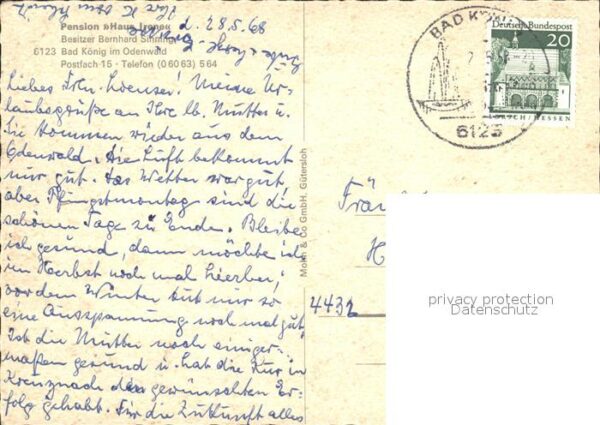 Pension »Haus Irene«
Besitzer Bernhard
6123 Bad König im Odenwald
Postfach 15 - Telefon (06063) 564
d. 28.5.68
Liebes Frln. Loenser! Meine Ur-
laubsgrüße an Ihre lb. Mutter u.
Sie kommen wieder aus dem
Odenwald. Die Luft bekommt
mir gut. Das Wetter war gut,
aber Pfingstmontag sind die
schönen Tage zu Ende. Bleibe
ich gesund, dann möchte ich
im Herbst noch mal hierher,
vor dem Winter tut mir so
eine Ausspannung noch mal gut.
Ist die Mutter noch einiger-
maßen gesund u. hat die Kur in
Kreuznach den gewünschten Er-
folg gehabt. Für die Zukunft alles
Mohn & Co GmbH, Gütersloh
BAD KÖNIG
6123
Deutsche Bundespost
20
LORSCH/HESSEN
Fräu
H
4432
privacy protection
Datenschutz